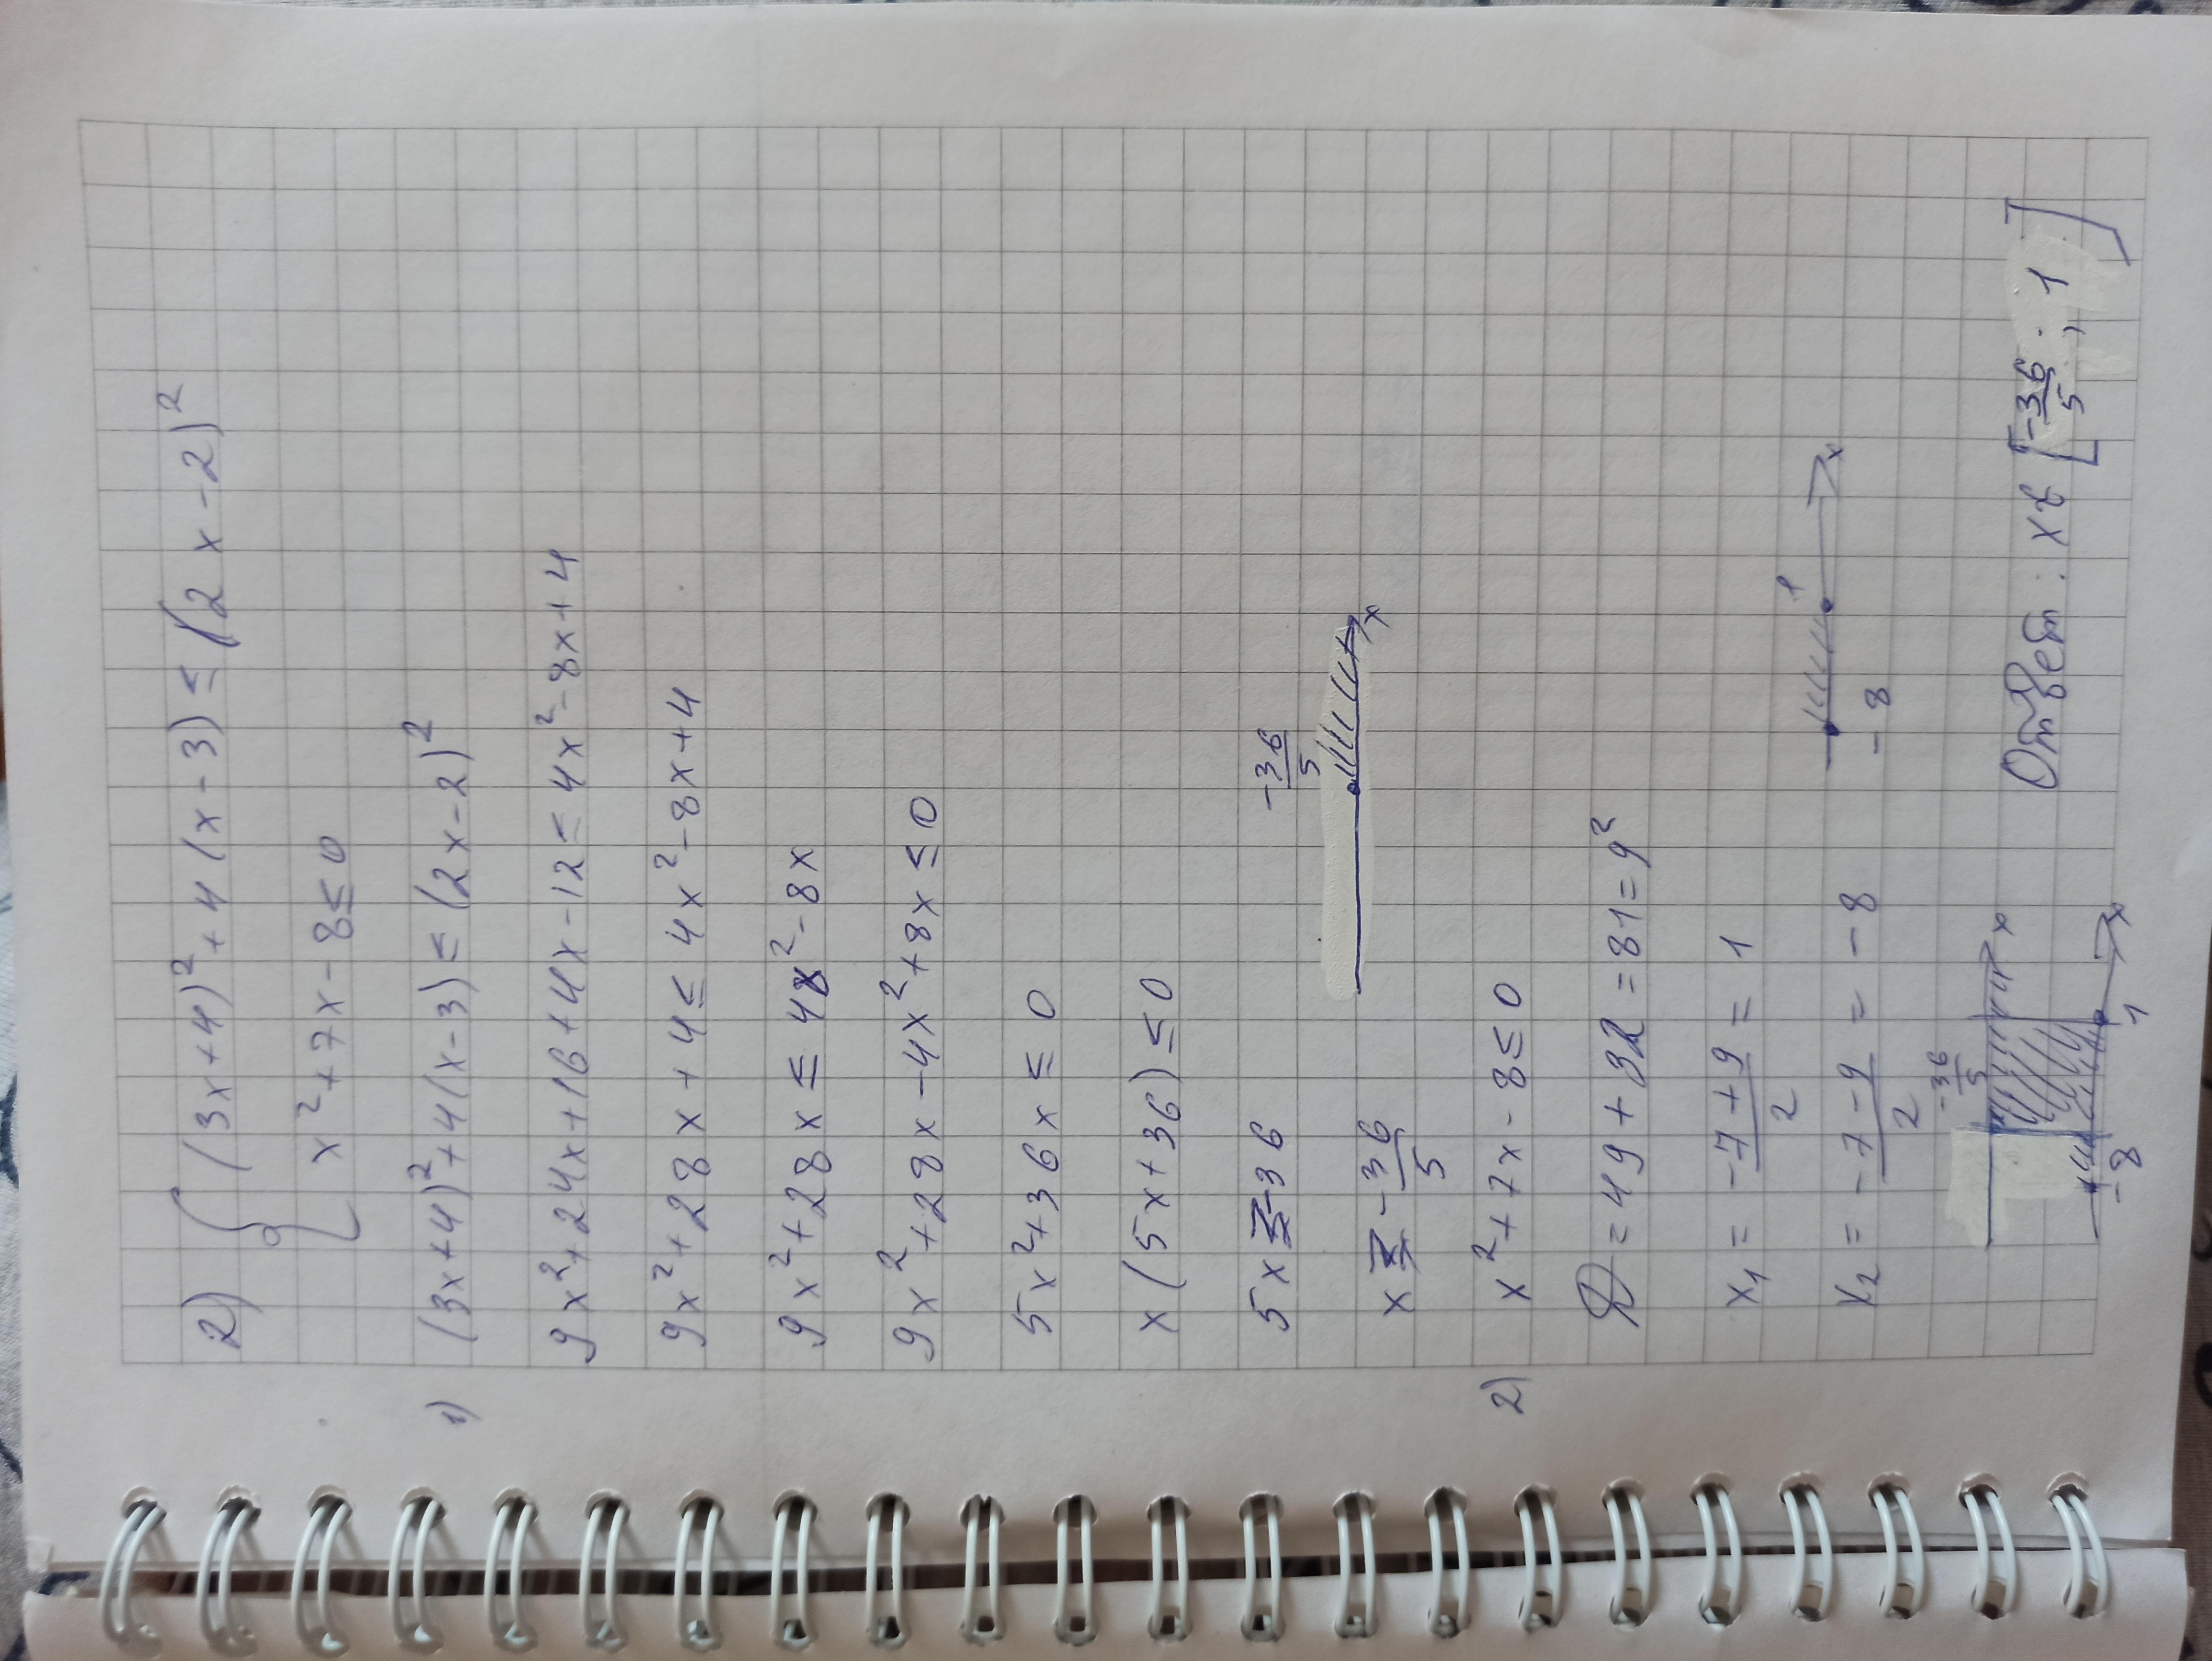 2) { (3x+4)² + 4(x-3) ≤ (2x-2)²
x² + 7x - 8 ≤ 0
1) (3x+4)² + 4(x-3) ≤ (2x-2)²
9x² + 24x + 16 + 4x - 12 ≤ 4x² - 8x + 4
9x² + 28x + 4 ≤ 4x² - 8x + 4
9x² + 28x ≤ 4x² - 8x
9x² + 28x - 4x² + 8x ≤ 0
5x² + 36x ≤ 0
x(5x+36) ≤ 0
5x ≥ -36
x ≥ -36/5
-36/5 x
2) x² + 7x - 8 ≤ 0
D = 49 + 32 = 81 = 9²
x₁ = -7+9/2 = 1
x₂ = -7-9/2 = -8
-8 1 x
-36/5 x
-8 1 x
Ответ: x ∈ [-36/5; 1]